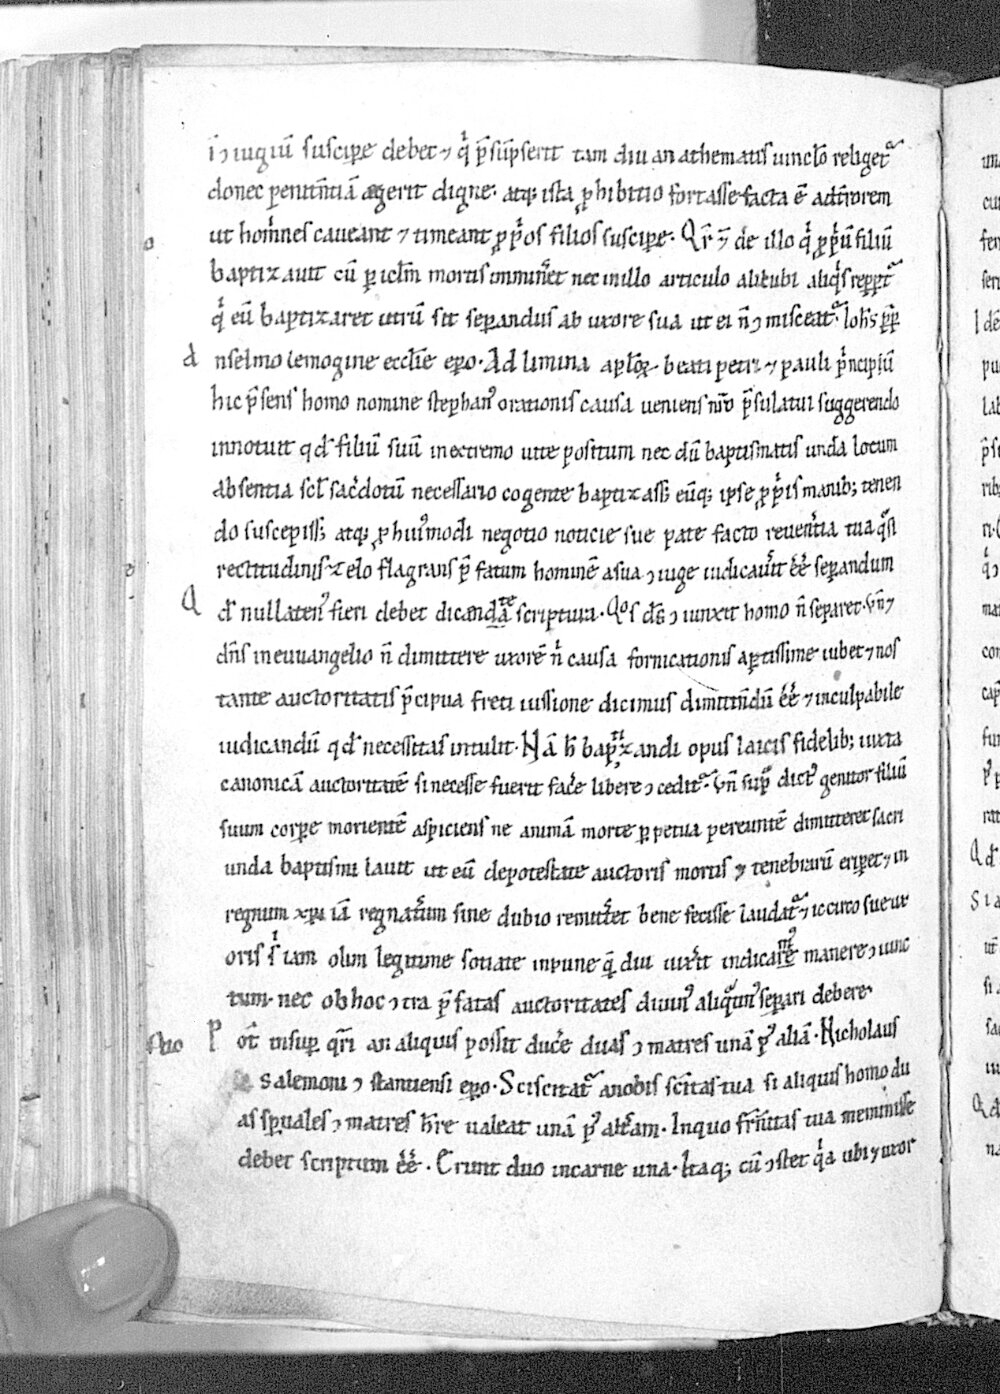 ī ɔiugiū suscipe debet ⁊ qͥ p̄sūpserit tam diu anathematis uinclo religetᷣ
donec penitn̄tiā ægerit digne· atq; ista ꝓhibitio fortasse facta ē adt̄rorem
ut homīnes caueant ⁊ timeant ꝓpͥos filios suscipe· Qr̄ ⁊ de illo qͥ ꝓpͥū filiū
baptizauit cū ꝑiclm̄ mortis imminȩ̄t nec in illo articulo alitubi aliqͥs reppͥtᷣ
qͥ eū baptizaret utrū sit sepandus ab uxore sua ut ei n̄ ɔmisceatᷣ· Ioh̄s p̄p
Anselmo lemogine ecclīe ep̄o· Ad limina aplōꝝ beati petri ⁊ pauli pͥncipiū
hic p̄sens homo nomine stephanꝰ orationis causa ueniens nr̄o p̄sulatui suggerendo
innotuit qd filiū suū in extremo uite positum nec dū baptismatis unda locum
absentia scl̄ sacͥdotū necessario cogente baptizass; eūq; ipse ꝓpͥis manib; tenen
do suscepiss; atq; ꝓ huiꝰmodi negotio noticie sue pate facto reuer̄tia tua qᷓsi
rectitudinis zelo flagrans p̄fatum hominē a sua ɔiuge iudicauͥt ēē sepandum
Qd nullatenꝰ fieri debet dicandāte scriptura· Qos ds̄ ɔiunxit homo n̄ separet· Vn̄ ⁊
dn̄s in euuangelio n̄ dimittere uxorē nͥ causa fornicationis aptissime iubet ⁊ nos
tante auctoritatis p̄cipua freti iussione dicimus dimittn̄dū ēē ⁊ inculpabile
iudicandū qd necessitas intulit· Nā h̄ baptizandi opus laicis fidelib; iuxta
canonicā auctoritatē si necesse fuerit facͤe libere ɔceditᷣ· Vn̄ supᷓ dictꝰ genitor filiū
suum corpe morientē aspiciens ne animā morte ꝑpetua pereuntē dimitteret sacri
unda baptismi lauit ut eū de potestate auctoris mortis ⁊ tenebrarū eripet ⁊ in
regnum xp̄i iā regnatͥum sine dubio remitt̄et bene fecisse laudatᷣ ⁊ iccirco sue ux
oris sͥ iam olim legitime sotiate inpune qᷓ diu uixͥit indicamꝰ manere ɔiunc
tum· nec ob hoc ɔtra p̄fatas auctoritates diuinꝰ aliqͣtinꝰ separi debere·
Pot̄ insup qr̄i an aliquis possit ducͤe duas ɔmatres unā pꝰ aliā· Nicholaus
salemoni ɔstantiensi ep̄o· Sciscitatᷣ a nobis scītas tua si aliquis homo du
as spuales ɔmatres h̄re ualeat unā pꝰ alt̄am· In quo fr̄nitas tua meminisse
debet scriptum ēē· Erunt duo in carne una· Itaq; cū ɔstet qͥa uir ⁊ uxor